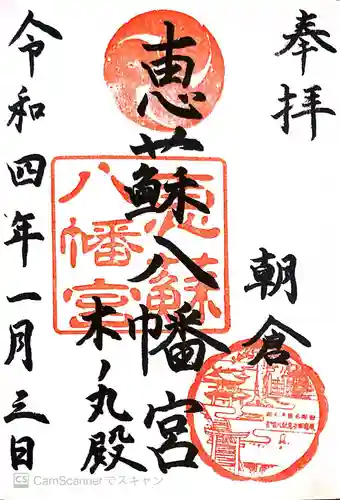 奉拝
朝倉
恵蘇八幡宮
木ノ丸殿
令和四年一月三日
恵蘇
八幡宮
CS CamScannerでスキャン